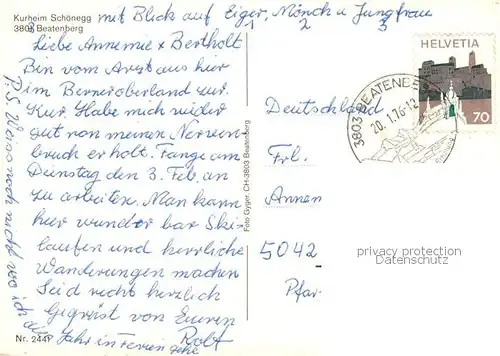 Kurheim Schönegg
3803 Beatenberg
mit Blick auf Eiger, Mönch u Jungfrau
1 2 3
Liebe Annemie + Bertholt
Bin vom Arzt aus hier
im Berneroberland zur
Kur. Habe mich wieder
gut von meinen Nerven-
bruch erholt. Fange am
Dienstag den 3. Feb. an
zu arbeiten. Man kann
hier wunder bar Ski-
laufen und herrliche
Wanderungen machen
Seid recht herzlich
Gegrüst von Euren
Rolf
P.S. Weiss noch nicht wo ich
das Jahr in Ferien gehe
Nr. 244
Foto Gyger, CH-3803 Beatenberg
HELVETIA
70
3803 BEATENBERG
20.1.76-12
Deutschland
Frl.
Annem
5042
Pfar
privacy protection
Datenschutz